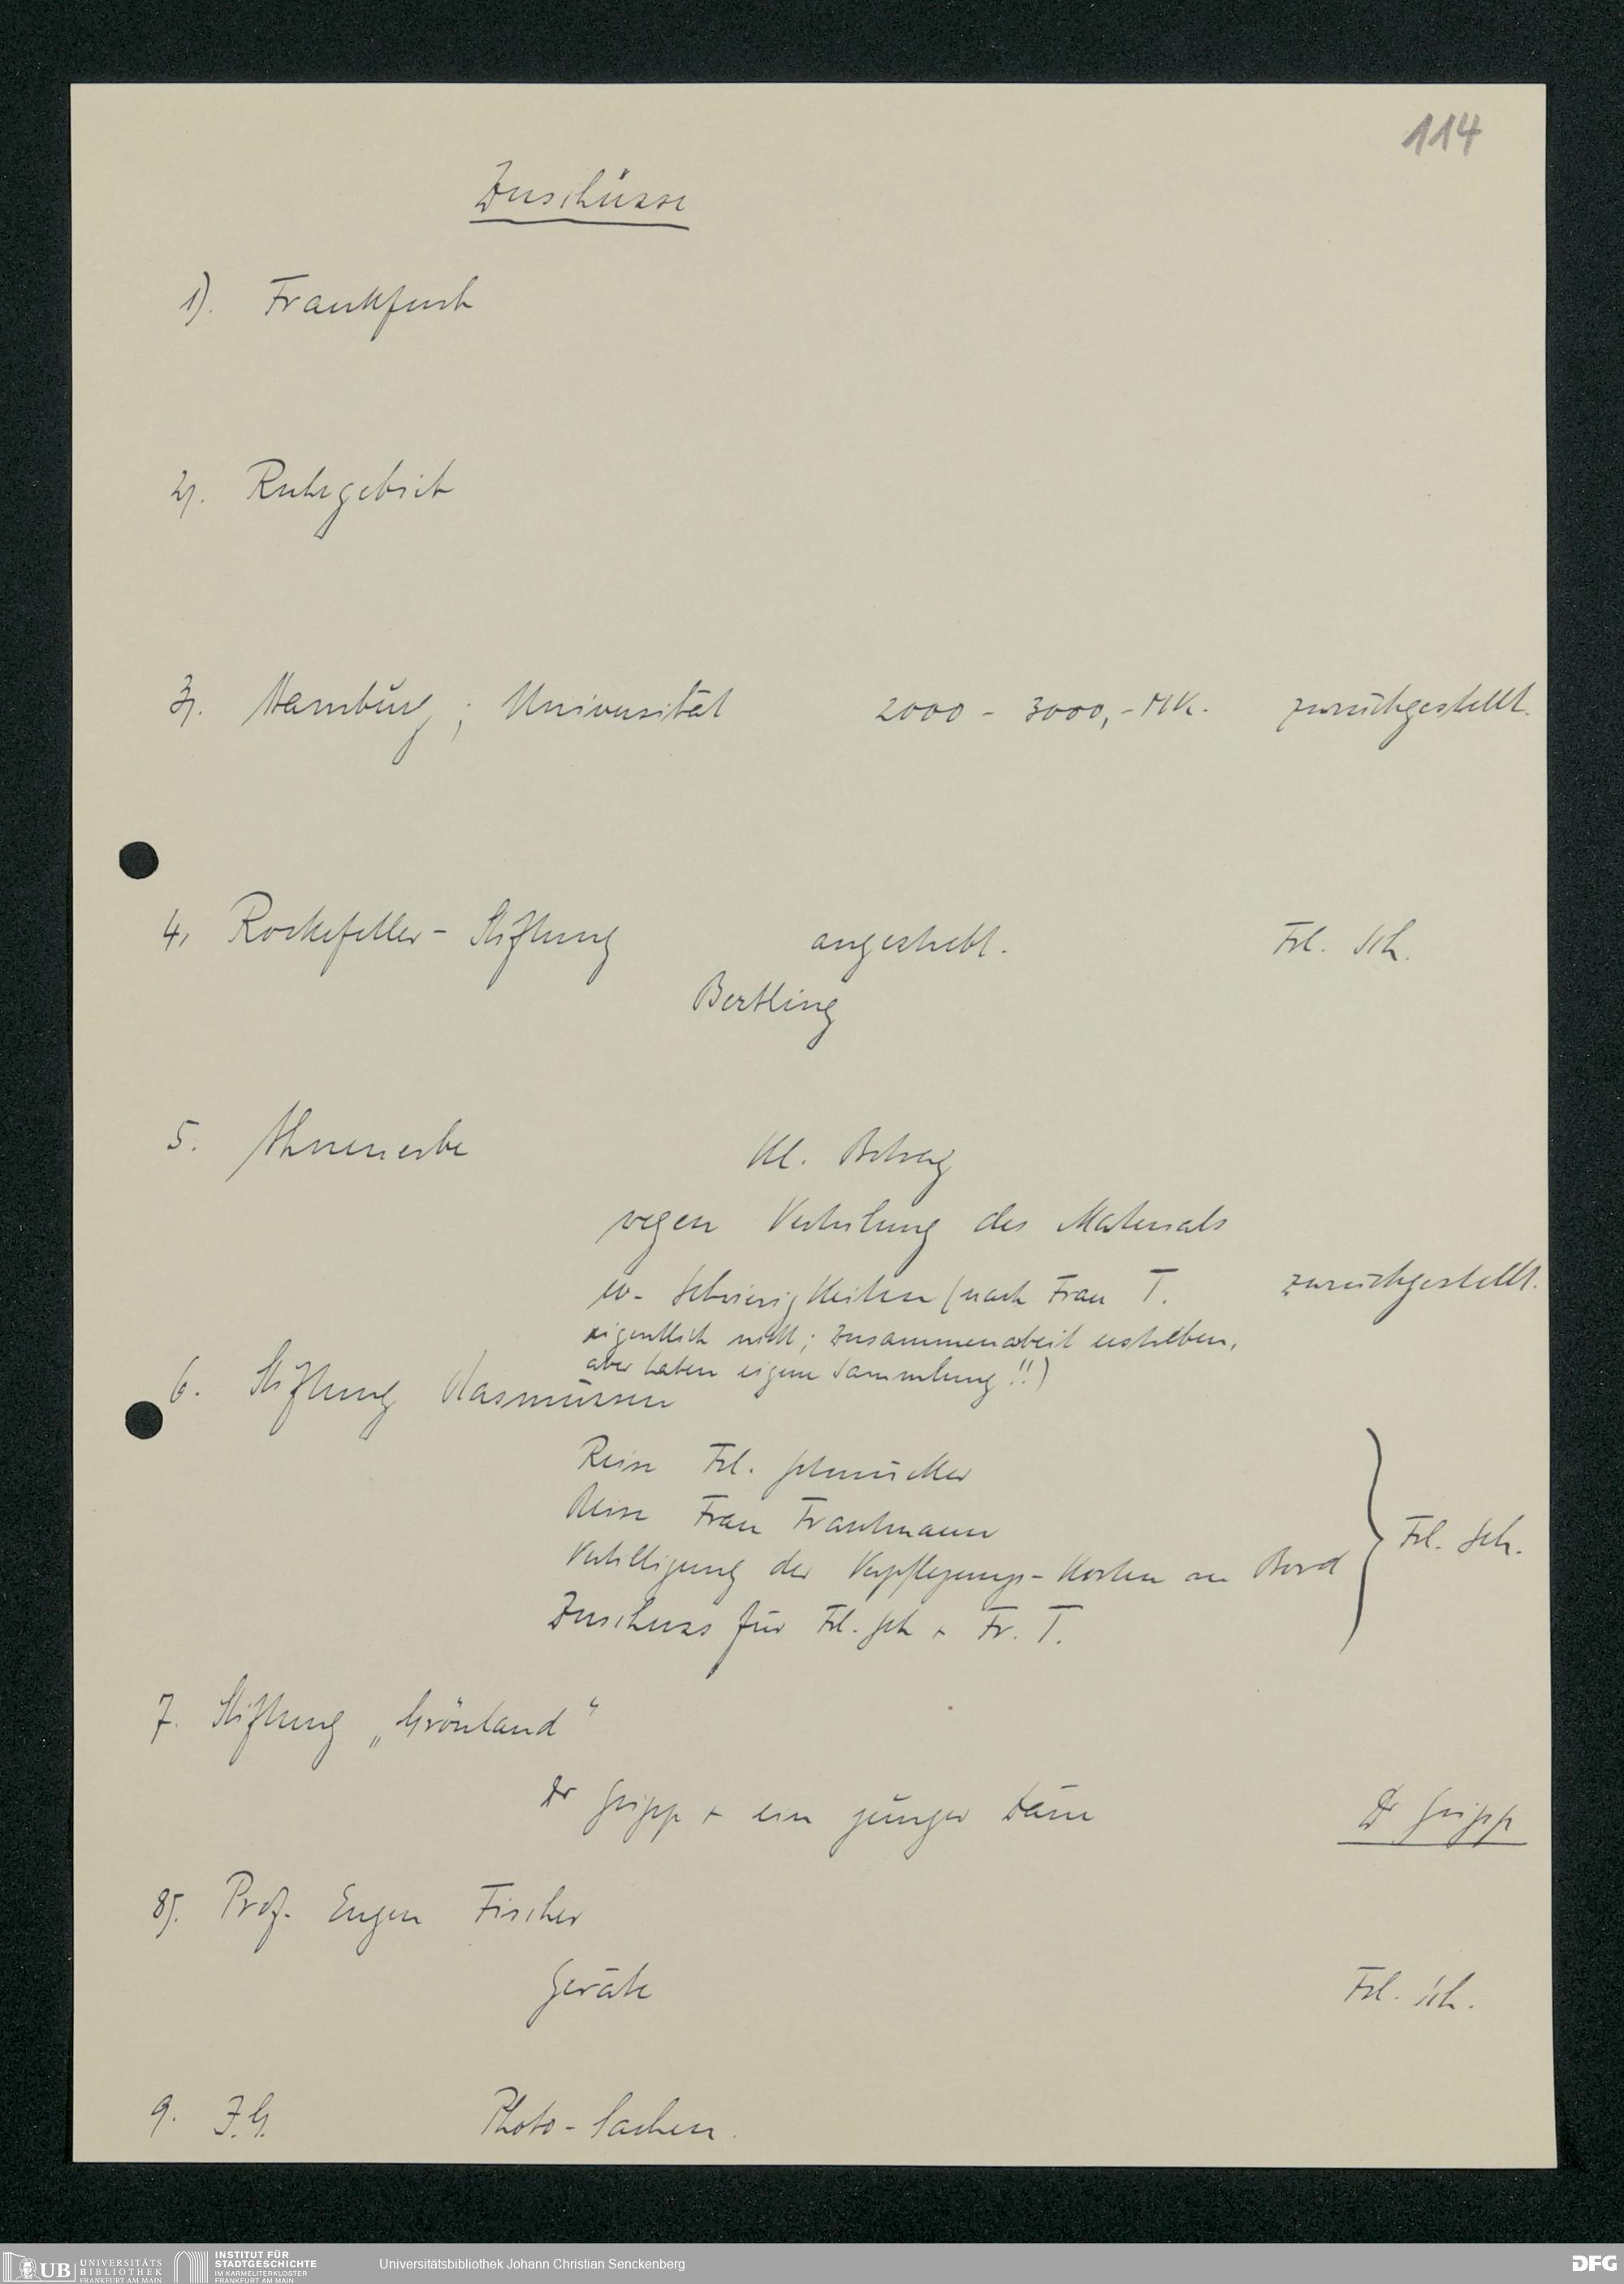 114
Zuschüsse
1). Frankfurt
2). Ruhrgebiet
3). Hamburg; Universität 2000 - 3000,- Mk. zurückgestellt.
4, Rockefeller - Stiftung angestrebt. Frl. Sch.
Bertling
5. Ahnenerbe Kl. Betrag
wegen Verteilung des Materials
ev. Schwierigkeiten (nach Frau T. zurückgestellt.
eigentlich nicht; Zusammenarbeit erstreben,
aber haben eigene Sammlung!!)
6. Stiftung Rasmussen
Reise Frl. Schmücker
Reise Frau Trautmann
Verbilligung der Verpflegungs-Kosten an Bord Frl. Sch.
Zuschuss für Frl. Sch + Fr. T.
7. Stiftung „Grönland"
Dr Gripp + ein junger Däne Dr Gripp
8). Prof. Eugen Fischer
Geräte Frl. Sch.
9. I.G. Photo-Sachen.
UB UNIVERSITÄTS
BIBLIOTHEK
FRANKFURT AM MAIN
INSTITUT FÜR
STADTGESCHICHTE
IM KARMELITERKLOSTER
FRANKFURT AM MAIN
Universitätsbibliothek Johann Christian Senckenberg
DFG